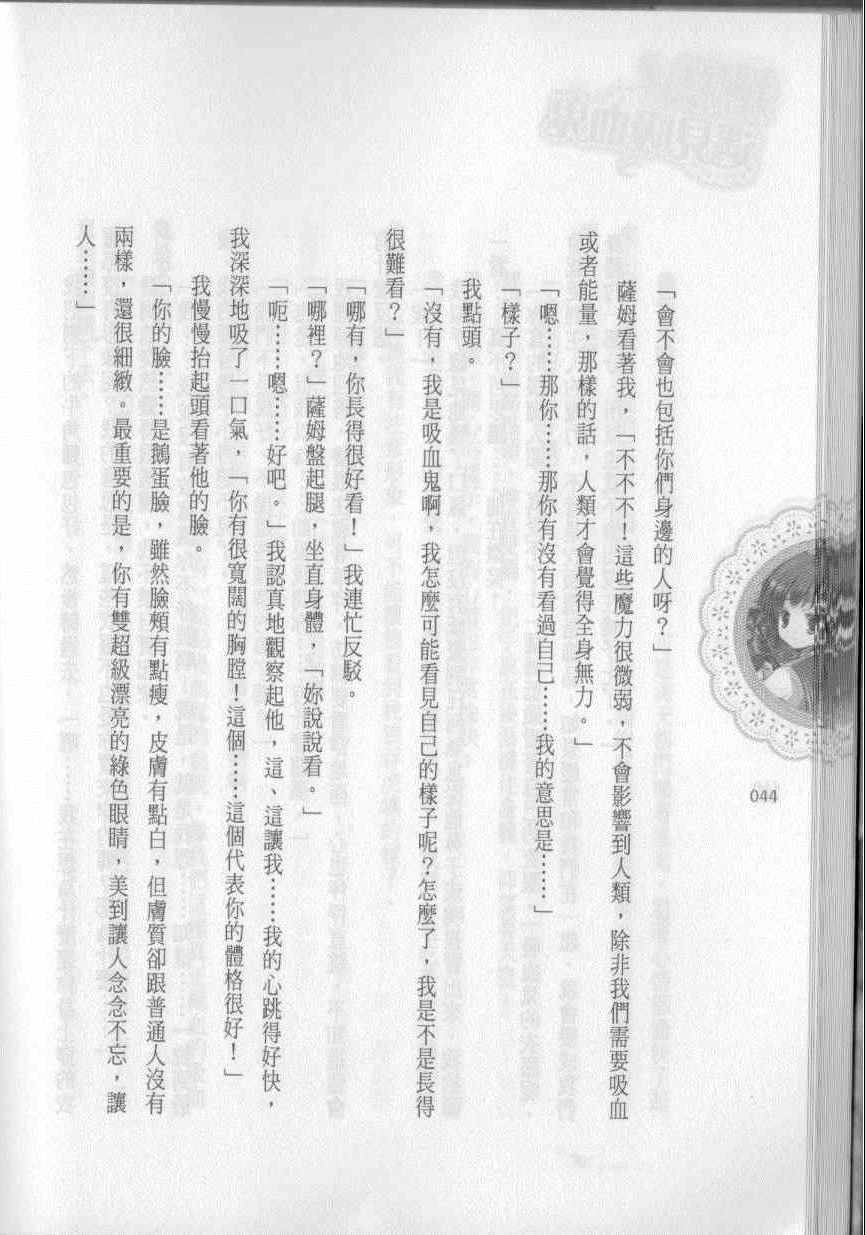 「會不會也包括你們身邊的人呀？」
薩姆看著我，「不不不！這些魔力很微弱，不會影響到人類，除非我們需要吸血
或者能量，那樣的話，人類才會覺得全身無力。」
「嗯……那你……那你有沒有看過自己……我的意思是……」
「樣子？」
我點頭。
「沒有，我是吸血鬼啊，我怎麼可能看見自己的樣子呢？怎麼了，我是不是長得
很難看？」
「哪有，你長得很好看！」我連忙反駁。
「哪裡？」薩姆盤起腿，坐直身體，「妳說說看。」
「呃……嗯……好吧。」我認真地觀察起他，這、這讓我……我的心跳得好快，
我深深地吸了一口氣，「你有很寬闊的胸膛！這個……這個代表你的體格很好！」
我慢慢抬起頭看著他的臉。
「你的臉……是鵝蛋臉，雖然臉頰有點瘦，皮膚有點白，但膚質卻跟普通人沒有
兩樣，還很細緻。最重要的是，你有雙超級漂亮的綠色眼睛，美到讓人念念不忘，讓
人……」
044